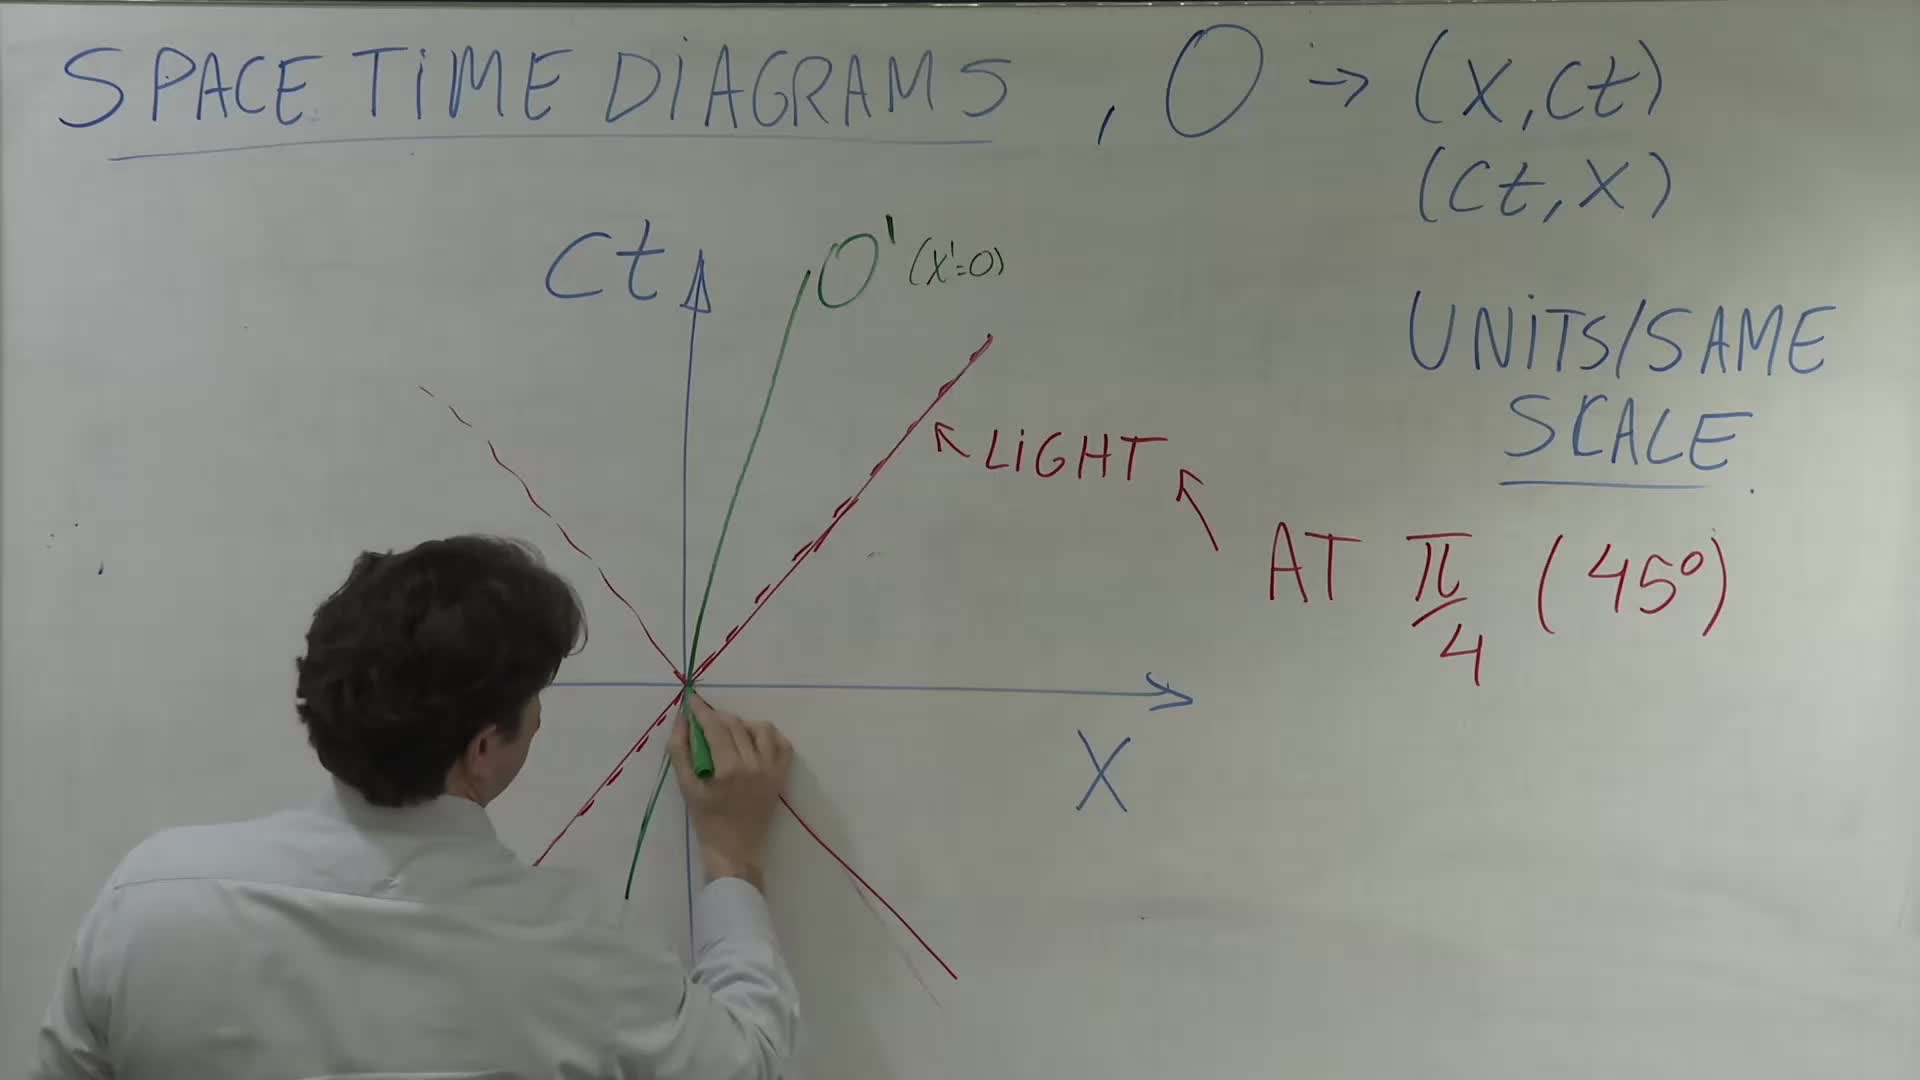 SPACE TIME DIAGRAMS, O → (X,Ct)
(Ct,X)
Ct
O' (X'=0)
UNITS/SAME
SCALE
LIGHT
AT π/4 (45°)
X